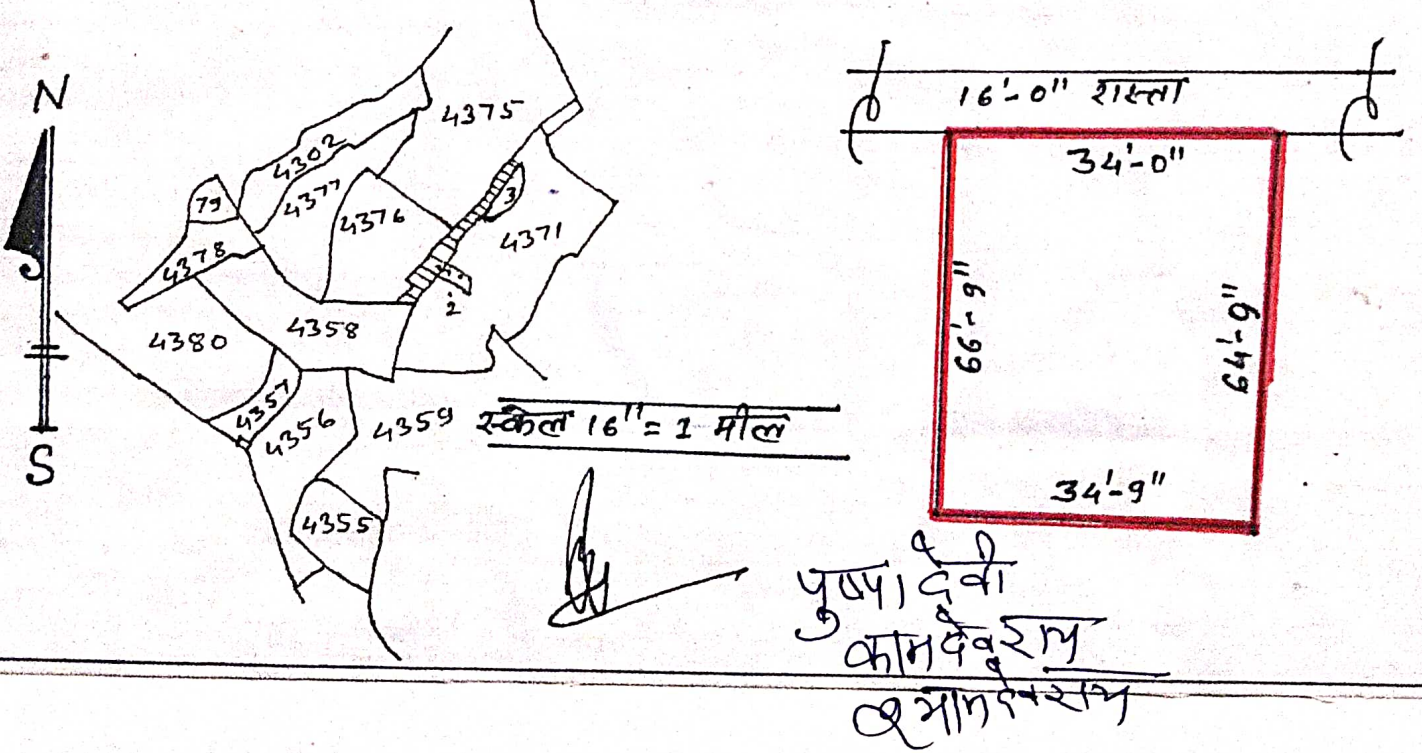 N
4375
4302
4377
79
4376
3
4371
4378
2
4358
4380
4357
4356
4359
4355
S
स्केल 16" = 1 मील
16'-0" रास्ता
34'-0"
66'-9"
64'-9"
34'-9"
पुष्पा देवी
कामदेव राय
श्यामदेव राय